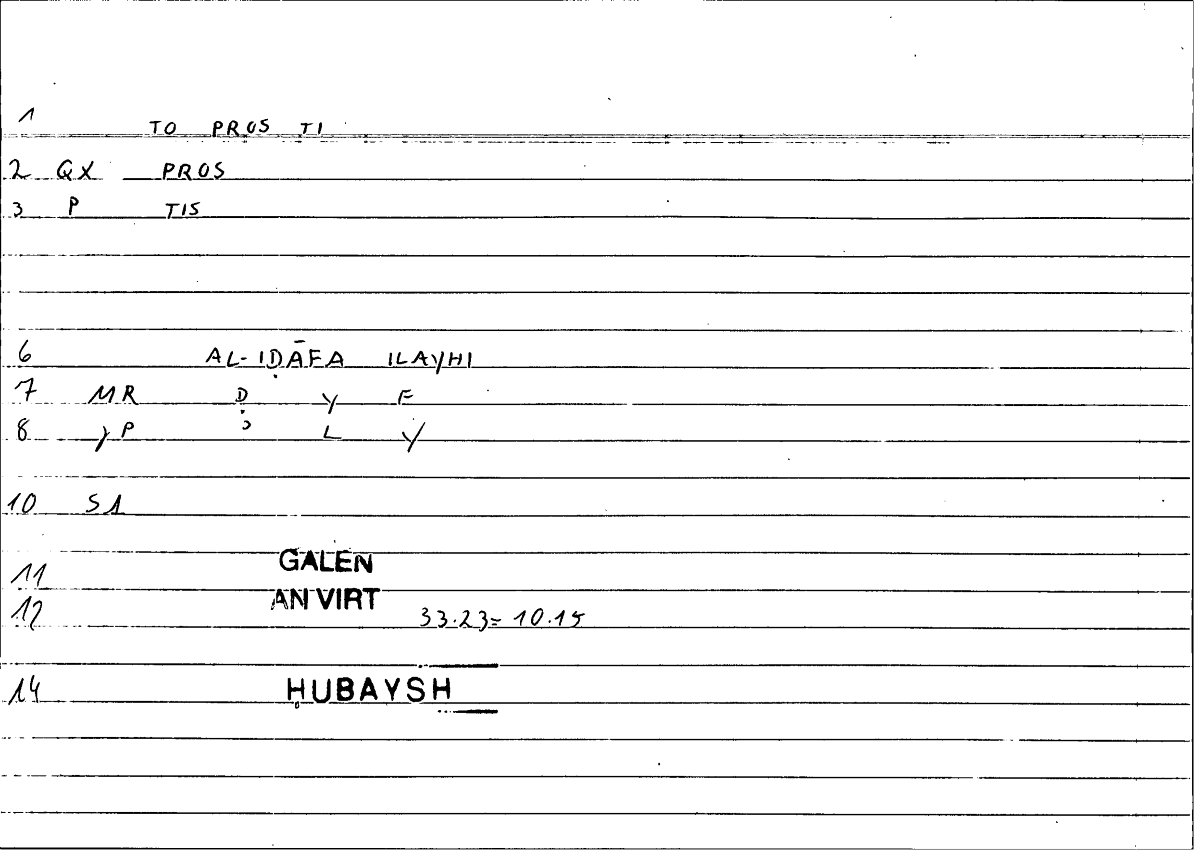 1 TO PROS TI
2 QX PROS
3 P TIS
6 AL-IḌĀFA ILAYHI
7 MR Ḍ Y F
8 γP ʾ L Y
10 S1
11 GALEN
12 AN VIRT 33.23= 10.15
14 ḤUBAYSH